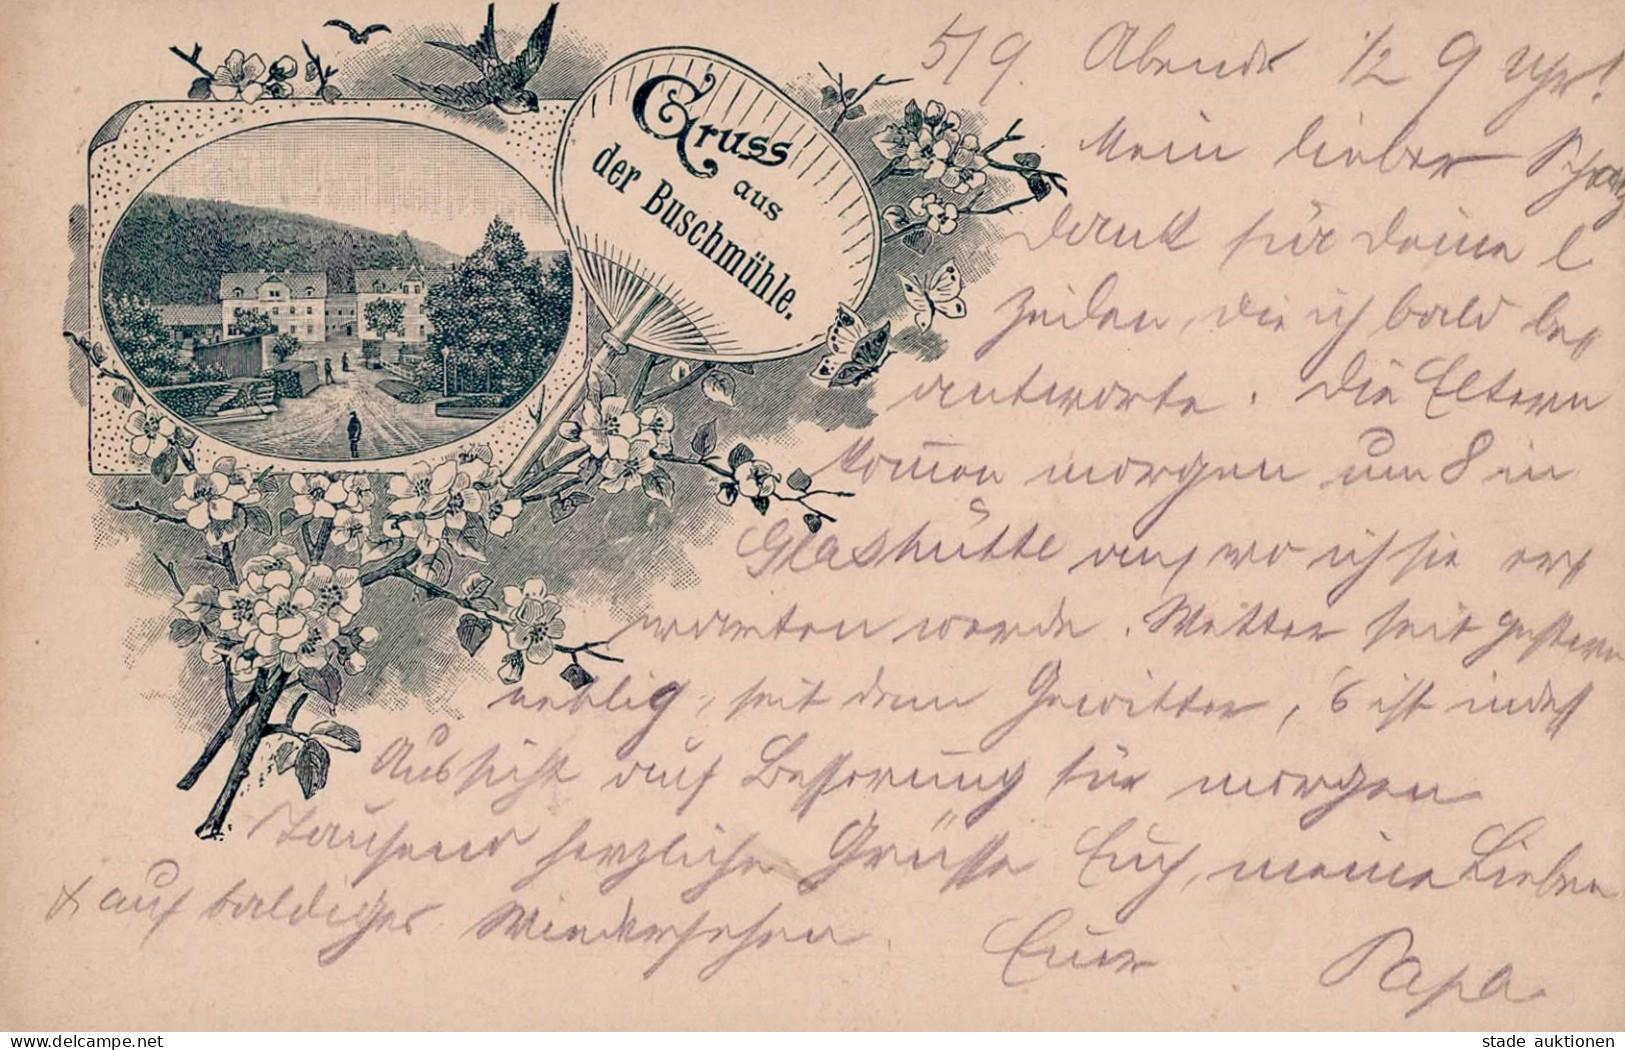 Gruss
aus
der Buschmühle.
5/9. Abends 1/2 9 Uhr!
Mein lieber Schatz
Dank für Deine l
Zeilen, die ich bald be=
antworte. Die Eltern
kommen morgen um 8 in
Glashütte an, wo ich sie er=
warten werde. Wetter seit gestern
neblig, seit dem Gewitter, 's ist indeß
Aussicht auf Besserung für morgen
Tausend herzliche Grüsse Euch, meine Lieben
& auf baldiges Wiedersehen.
Euer Papa
www.delcampe.net
stade auktionen